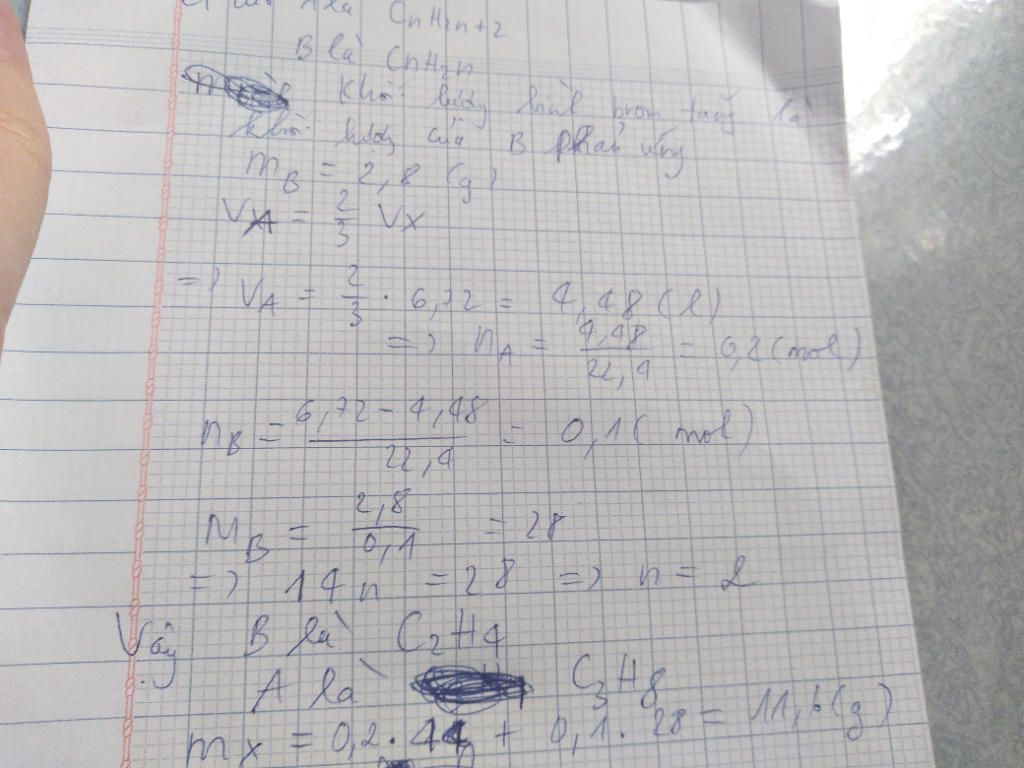 A là CnH2n+2
B là CnH2n
Khối lượng bình brom tăng là
khối lượng của B phản ứng
mB = 2,8 (g)
VA = 2/3 Vx
=> VA = 2/3 . 6,72 = 4,48 (l)
=> nA = 4,48/22,4 = 0,2 (mol)
nB = (6,72 - 4,48)/22,4 = 0,1 ( mol)
MB = 2,8/0,1 = 28
=> 14n = 28 => n = 2
Vậy B là C2H4
A là C3H8
mx = 0,2 . 44 + 0,1 . 28 = 11,6 (g)